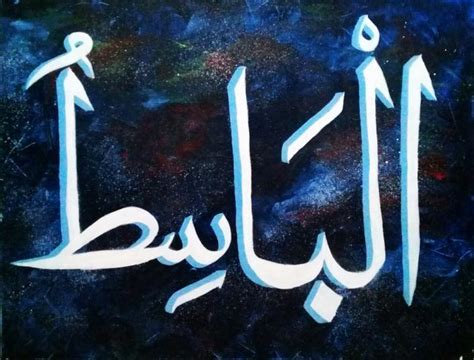 الْبَاسِطُ